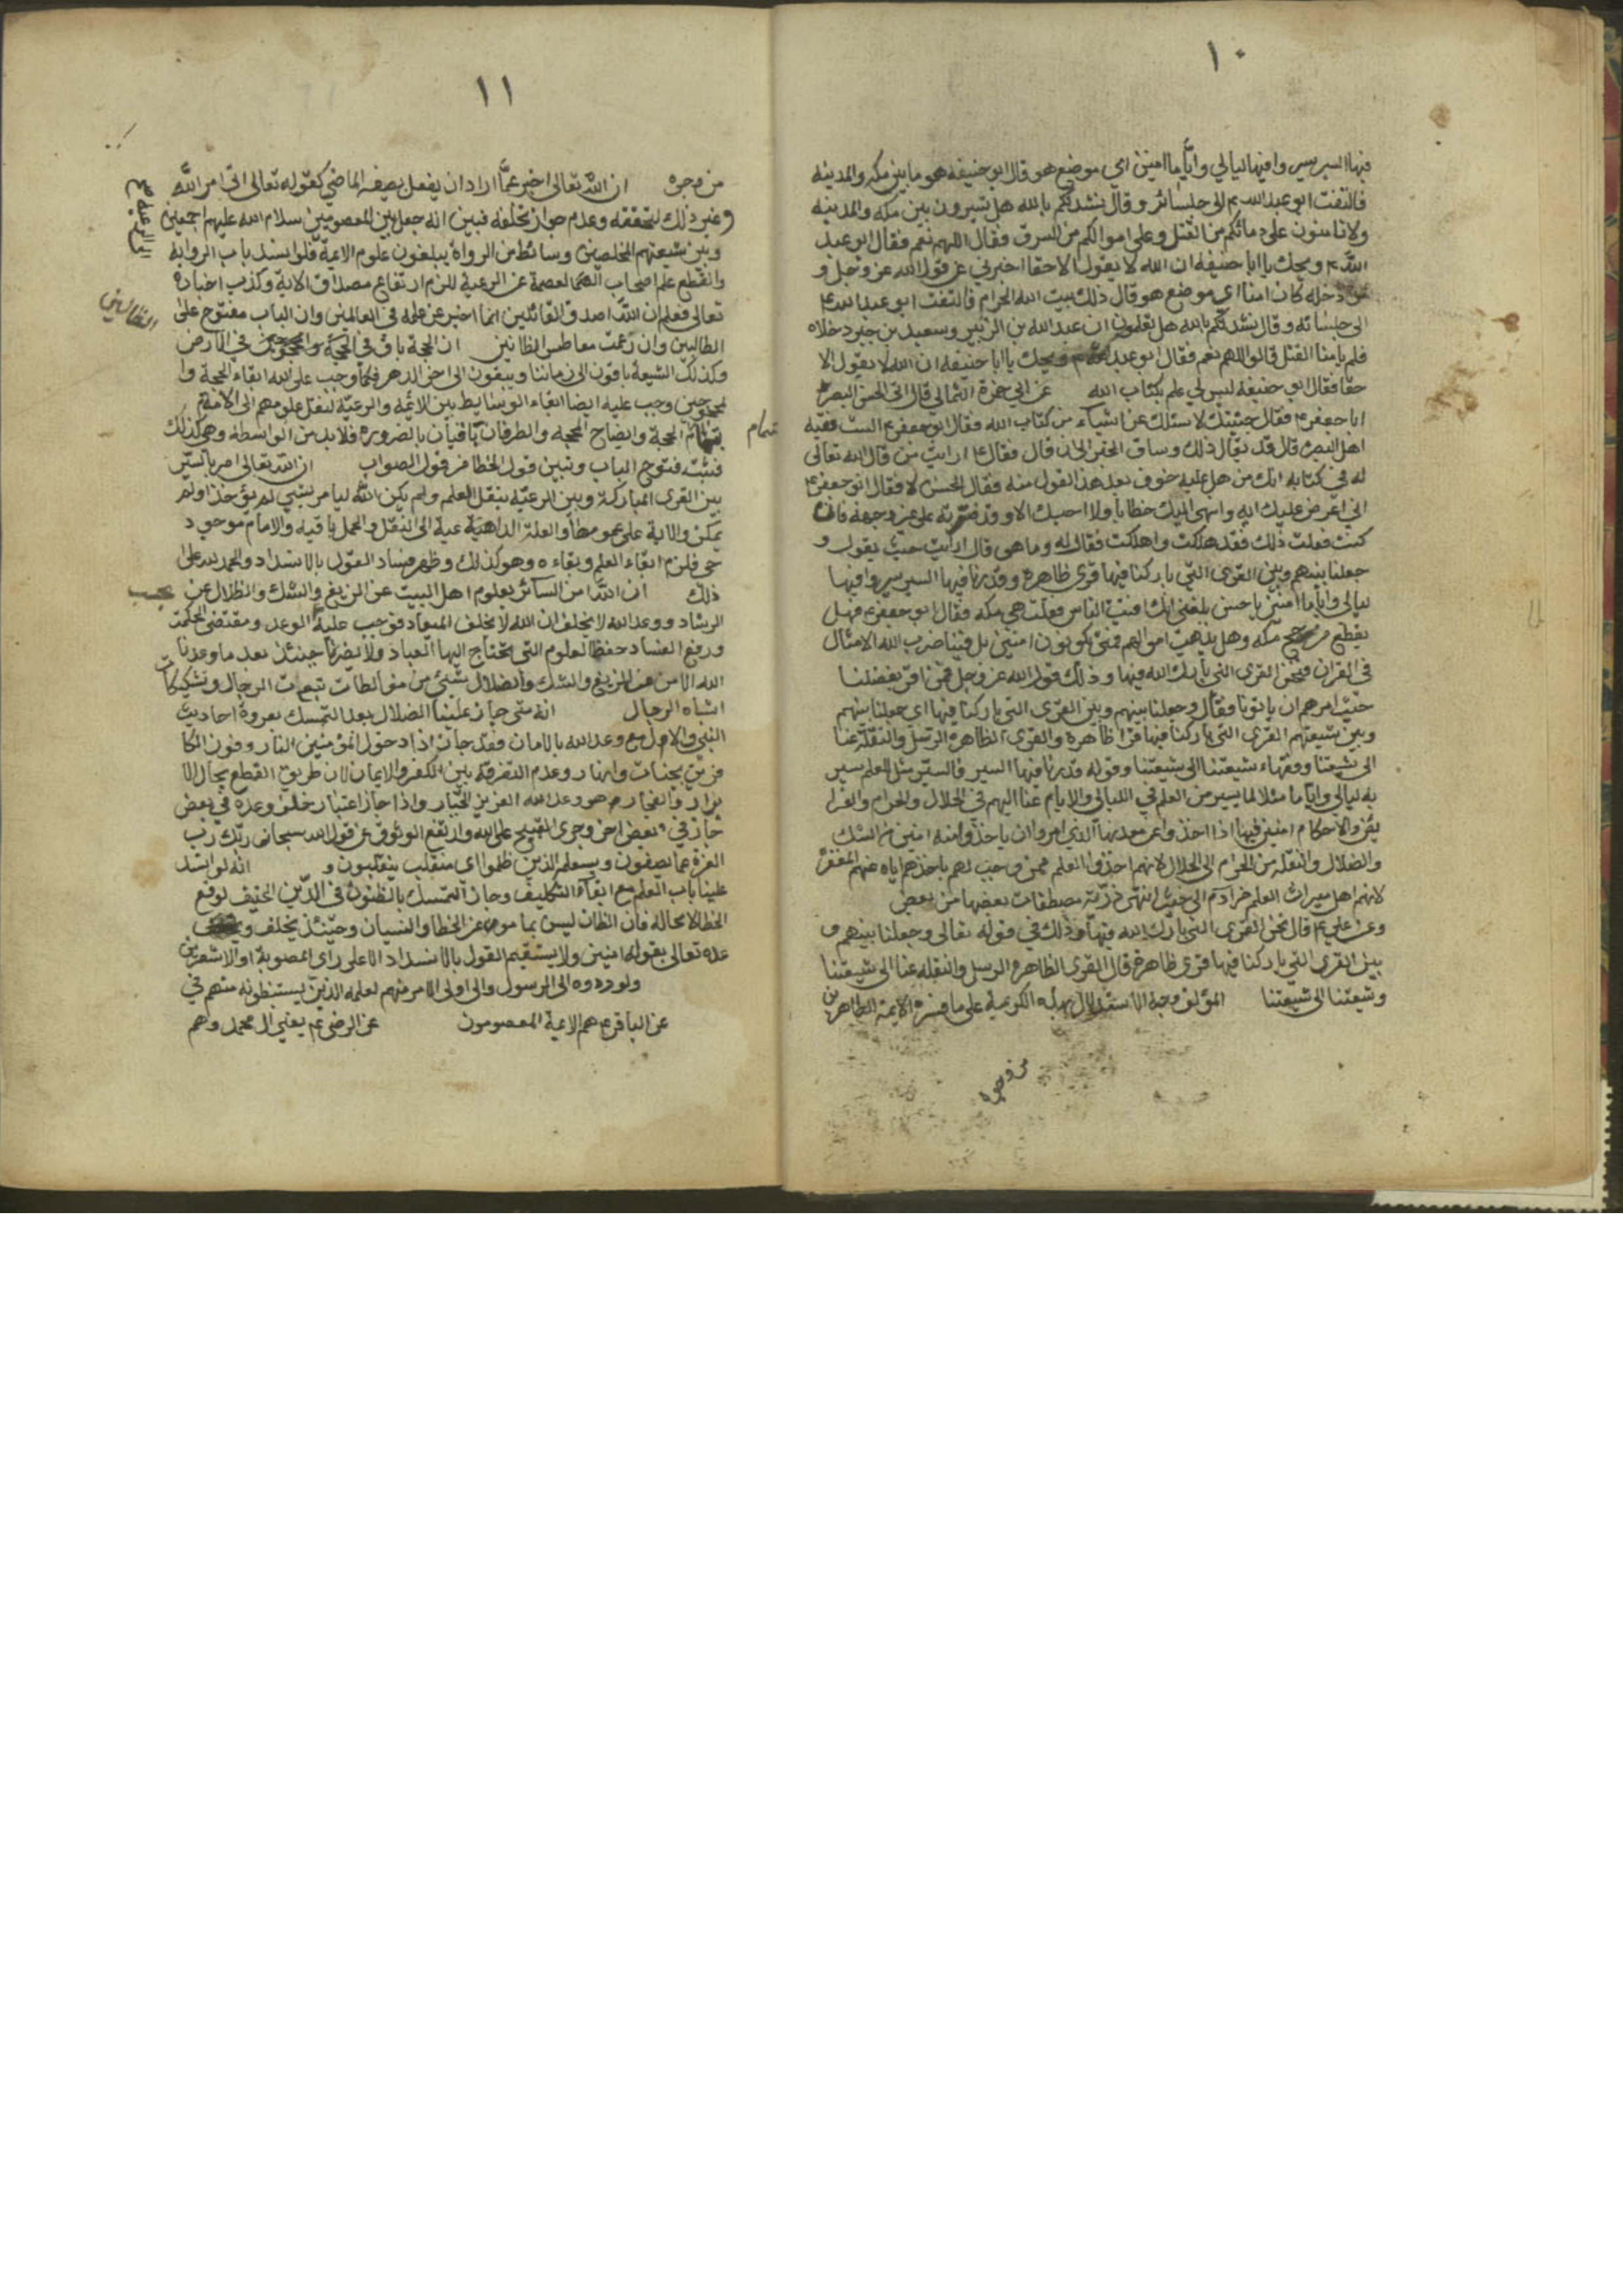 ١٠
فيها السير سيروا فيها ليالي وايّاما امنين اي موضع هو قال ابو حنيفه هو ما بين مكه والمدينه
فالتفت ابو عبد الله ع الى جلسائه وقال نشدتكم بالله هل تسيرون بين مكه والمدينه
ولا تامنون على دمائكم من القتل وعلى اموالكم من السرق فقال اللهم نعم فقال ابو عبد
الله ع ويحك يا ابا حنيفه ان الله لا يقول الا حقا اخبرني عن قول الله عز وجل و
من دخله كان امنا اي موضع هو قال ذلك بيت الله الحرام فالتفت ابو عبد الله ع
الى جلسائه وقال نشدتكم بالله هل تعلمون ان عبد الله بن الزبير وسعيد بن جبير دخلاه
فلم يامنا القتل قالوا اللهم نعم فقال ابو عبد الله ع ويحك يا ابا حنيفه ان الله لا يقول الا
حقا فقال ابو حنيفه ليس لي علم بكتاب الله عن ابي حمزة الثمالي قال اتى الحسن البصرى
ابا جعفر ع فقال جئتك لاسئلك عن اشياء من كتاب الله فقال ابو جعفر ع الست فقيه
اهل البصره قال قد يقال ذلك وساق الخبر الى ان قال فقال ع ارايت من قال الله تعالى
له في كتابه انك امن هل عليه خوف بعد هذا القول منه فقال الحسن لا فقال ابو جعفر ع
اني اعرض عليك ايه وانهى اليك خطابا ولا احسبك الا وقد فسرته على غير وجهه فان
كنت فعلت ذلك فقد هلكت واهلكت فقال له وما هى قال ارايت حيث يقول و
جعلنا بينهم وبين القرى التي باركنا فيها قرى ظاهرة وقدرنا فيها السير سيروا فيها
ليالي وايّاما امنين يا حسن بلغني انك افتيت الناس فقلت هي مكه فقال ابو جعفر ع فهل
يقطع من حج مكه وهل يذهب اموالهم فمتى يكونون امنين بل فينا ضرب الله الامثال
في القران فنحن القرى التي بارك الله فيها وذلك قول الله عز وجل فمن اقر بفضلنا
حيث امرهم ان ياتونا فقال وجعلنا بينهم وبين القرى التي باركنا فيها اي جعلنا بينهم
وبين شيعتهم القرى التي باركنا فيها قرى ظاهرة والقرى الظاهره الرسل والنقله عنا
الى شيعتنا وفقهاء شيعتنا الى شيعتنا وقوله وقدرنا فيها السير فالسير مثل للعلم سير
به ليالي وايّاما مثلا لما يسير من العلم في الليالي والايام عنا اليهم في الحلال والحرام والفرا
يض والاحكام امنين فيها اذا اخذوا عن معدنها الذي امروا ان ياخذوا منه امنين من الشك
والضلال والنقله من الحرام الى الحلال لانهم اخذوا العلم ممن وجب لهم باخذهم اياه عنهم المغفرة
لانهم اهل ميراث العلم من ادم الى حيث انتهى ذرّيّة مصطفات بعضها من بعض
وعن علي ع قال نحن القرى التي بارك الله فيها وذلك في قوله تعالى وجعلنا بينهم و
بين القرى التي باركنا فيها قرى ظاهرة قال القرى الظاهرة الرسل والنقله عنا الى شيعتنا
وشيعتنا الى شيعتنا المؤلف وجه الاستدلال بهذه الكريمة على ما فسره الائمة الطاهرين
من وجوه
١١
من وجوه ان الله تعالى اخبر عمّا اراد ان يفعل بصيغه الماضي كقوله تعالى اتى امر الله
وغير ذلك لتحققه وعدم جواز تخلفه فبين انه جعل بين المعصومين سلام الله عليهم اجمعين
وبين شيعتهم المخلصين وسائط من الرواة يبلغون علوم الائمة فلو انسد باب الروايه
وانقطع علم اصحاب العصمة عن الرعية للزم ارتفاع مصداق الاية وكذب اخباره
تعالى فعلم ان الله اصدق القائلين انما اخبر عن علمه في العالمين وان الباب مفتوح على
الطالبين وان زعمت معاطس الظانين ان الحجة باق في الحجة والمحجوجين في الارض
وكذلك الشيعة باقون الى زماننا ويبقون الى اخر الدهر فكما وجب على الله ابقاء الحجة وا
لمحجوجين وجب عليه ايضا ابقاء الوسايط بين الائمه والرعيّة لنقل علومهم الى الامة
تمام
الحجة وايضاح المحجة والطرفان باقيان بالضروره فلا بد من الواسطة وهى كذلك
فثبت فتوح الباب وتبين قول الخطا من قول الصواب ان الله تعالى امر بالسير
بين القرى المباركة وبين الرعيّة بنقل العلم ولم يكن الله ليامر بشي لم يؤخذ او لم
يمكن والاية على عمومها والعلة الداهية عية الى النقل والحمل باقيه والامام موجود
حي فلزم ابقاء العلم وبقاءه وهو كذلك وظهر فساد القول بالانسداد والحمد لله على
ذلك ان الله امن السائر بعلوم اهل البيت عن الزيغ والشك والضلال عن
الرشاد ووعد الله لا يخلف ان الله لا يخلف الميعاد فوجب عليه الوعد ومقتضى الحكمة
ورفع الفساد حفظ العلوم التي يحتاج اليها العباد ولا يضرنا حينئذ بعد ما وعدنا
الله الامن من الزيغ والشك والضلال شيئ من مغالطات تبعات الرجال وتشكيكات
اشباه الرجال انه متى جاز علينا الضلال بعد التمسك بعروة احاديث
النبي والال مع وعد الله بالامان فقد جاز اذا دخول المؤمنين النار وفوز الكا
فرين بجنات وانهار وعدم التفرقه بين الكفر والايمان لان طريق القطع بحال الا
برار والفجار هو وعد الله العزيز الجبّار واذا جاز اعتبار خلف وعده في بعض
جاز في بعض اخر وجرى القبيح على الله وارتفع الوثوق عن قول الله سبحان ربّك رب
العزة عما يصفون وسيعلم الذين ظلموا اى منقلب ينقلبون و انه لو انسد
علينا باب العلم مع ابقاء التكليف وجاز التمسك بالظنون في الدّين الحنيف لوقع
الخطا لا محاله فان الظان ليس بمامون عن الخطا والنسيان وحينئذ يخلف و
عده تعالى بقوله امنين ولا يستقيم القول بالانسداد الا على راى المصوبة او الاشعريين
ولو ردوه الى الرسول والى اولى الامر منهم لعلمه الذين يستنبطونه منهم في
عن الباقر ع هم الائمة المعصومون عن الرضى ع يعني ال محمد وهم